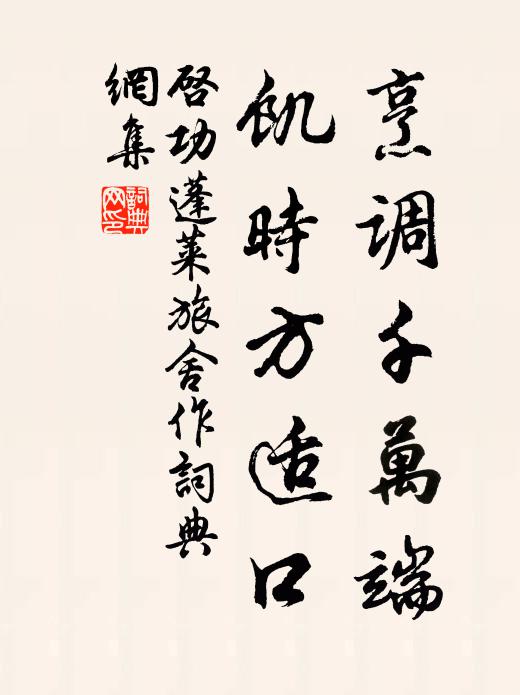 烹調千萬端
飢時方适口
啓功蓬萊旅舍作詞典
網集
詞典網印